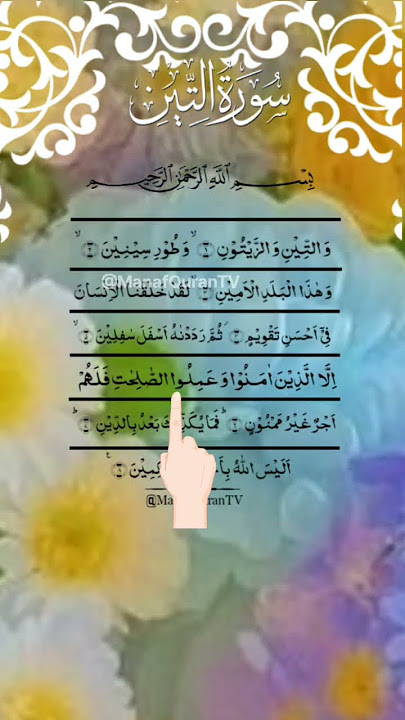 سُورَةُ التِّينِ
بِسْمِ اللّٰهِ الرَّحْمٰنِ الرَّحِيْمِ
وَالتِّيْنِ وَالزَّيْتُوْنِ ۙ۝١ وَطُوْرِ سِيْنِيْنَ ۙ۝٢
@ManafQuranTV
وَهٰذَا الْبَلَدِ الْاَمِيْنِ ۙ۝٣ لَقَدْ خَلَقْنَا الْاِنْسَانَ
فِيْٓ اَحْسَنِ تَقْوِيْمٍ ۝٤ ثُمَّ رَدَدْنٰهُ اَسْفَلَ سٰفِلِيْنَ ۙ۝٥
اِلَّا الَّذِيْنَ اٰمَنُوْا وَعَمِلُوا الصّٰلِحٰتِ فَلَهُمْ
اَجْرٌ غَيْرُ مَمْنُوْنٍ ۗ۝٦ فَمَا بَعْدُ بِالدِّيْنِ ۗ۝٧
اَلَيْسَ اللّٰهُ